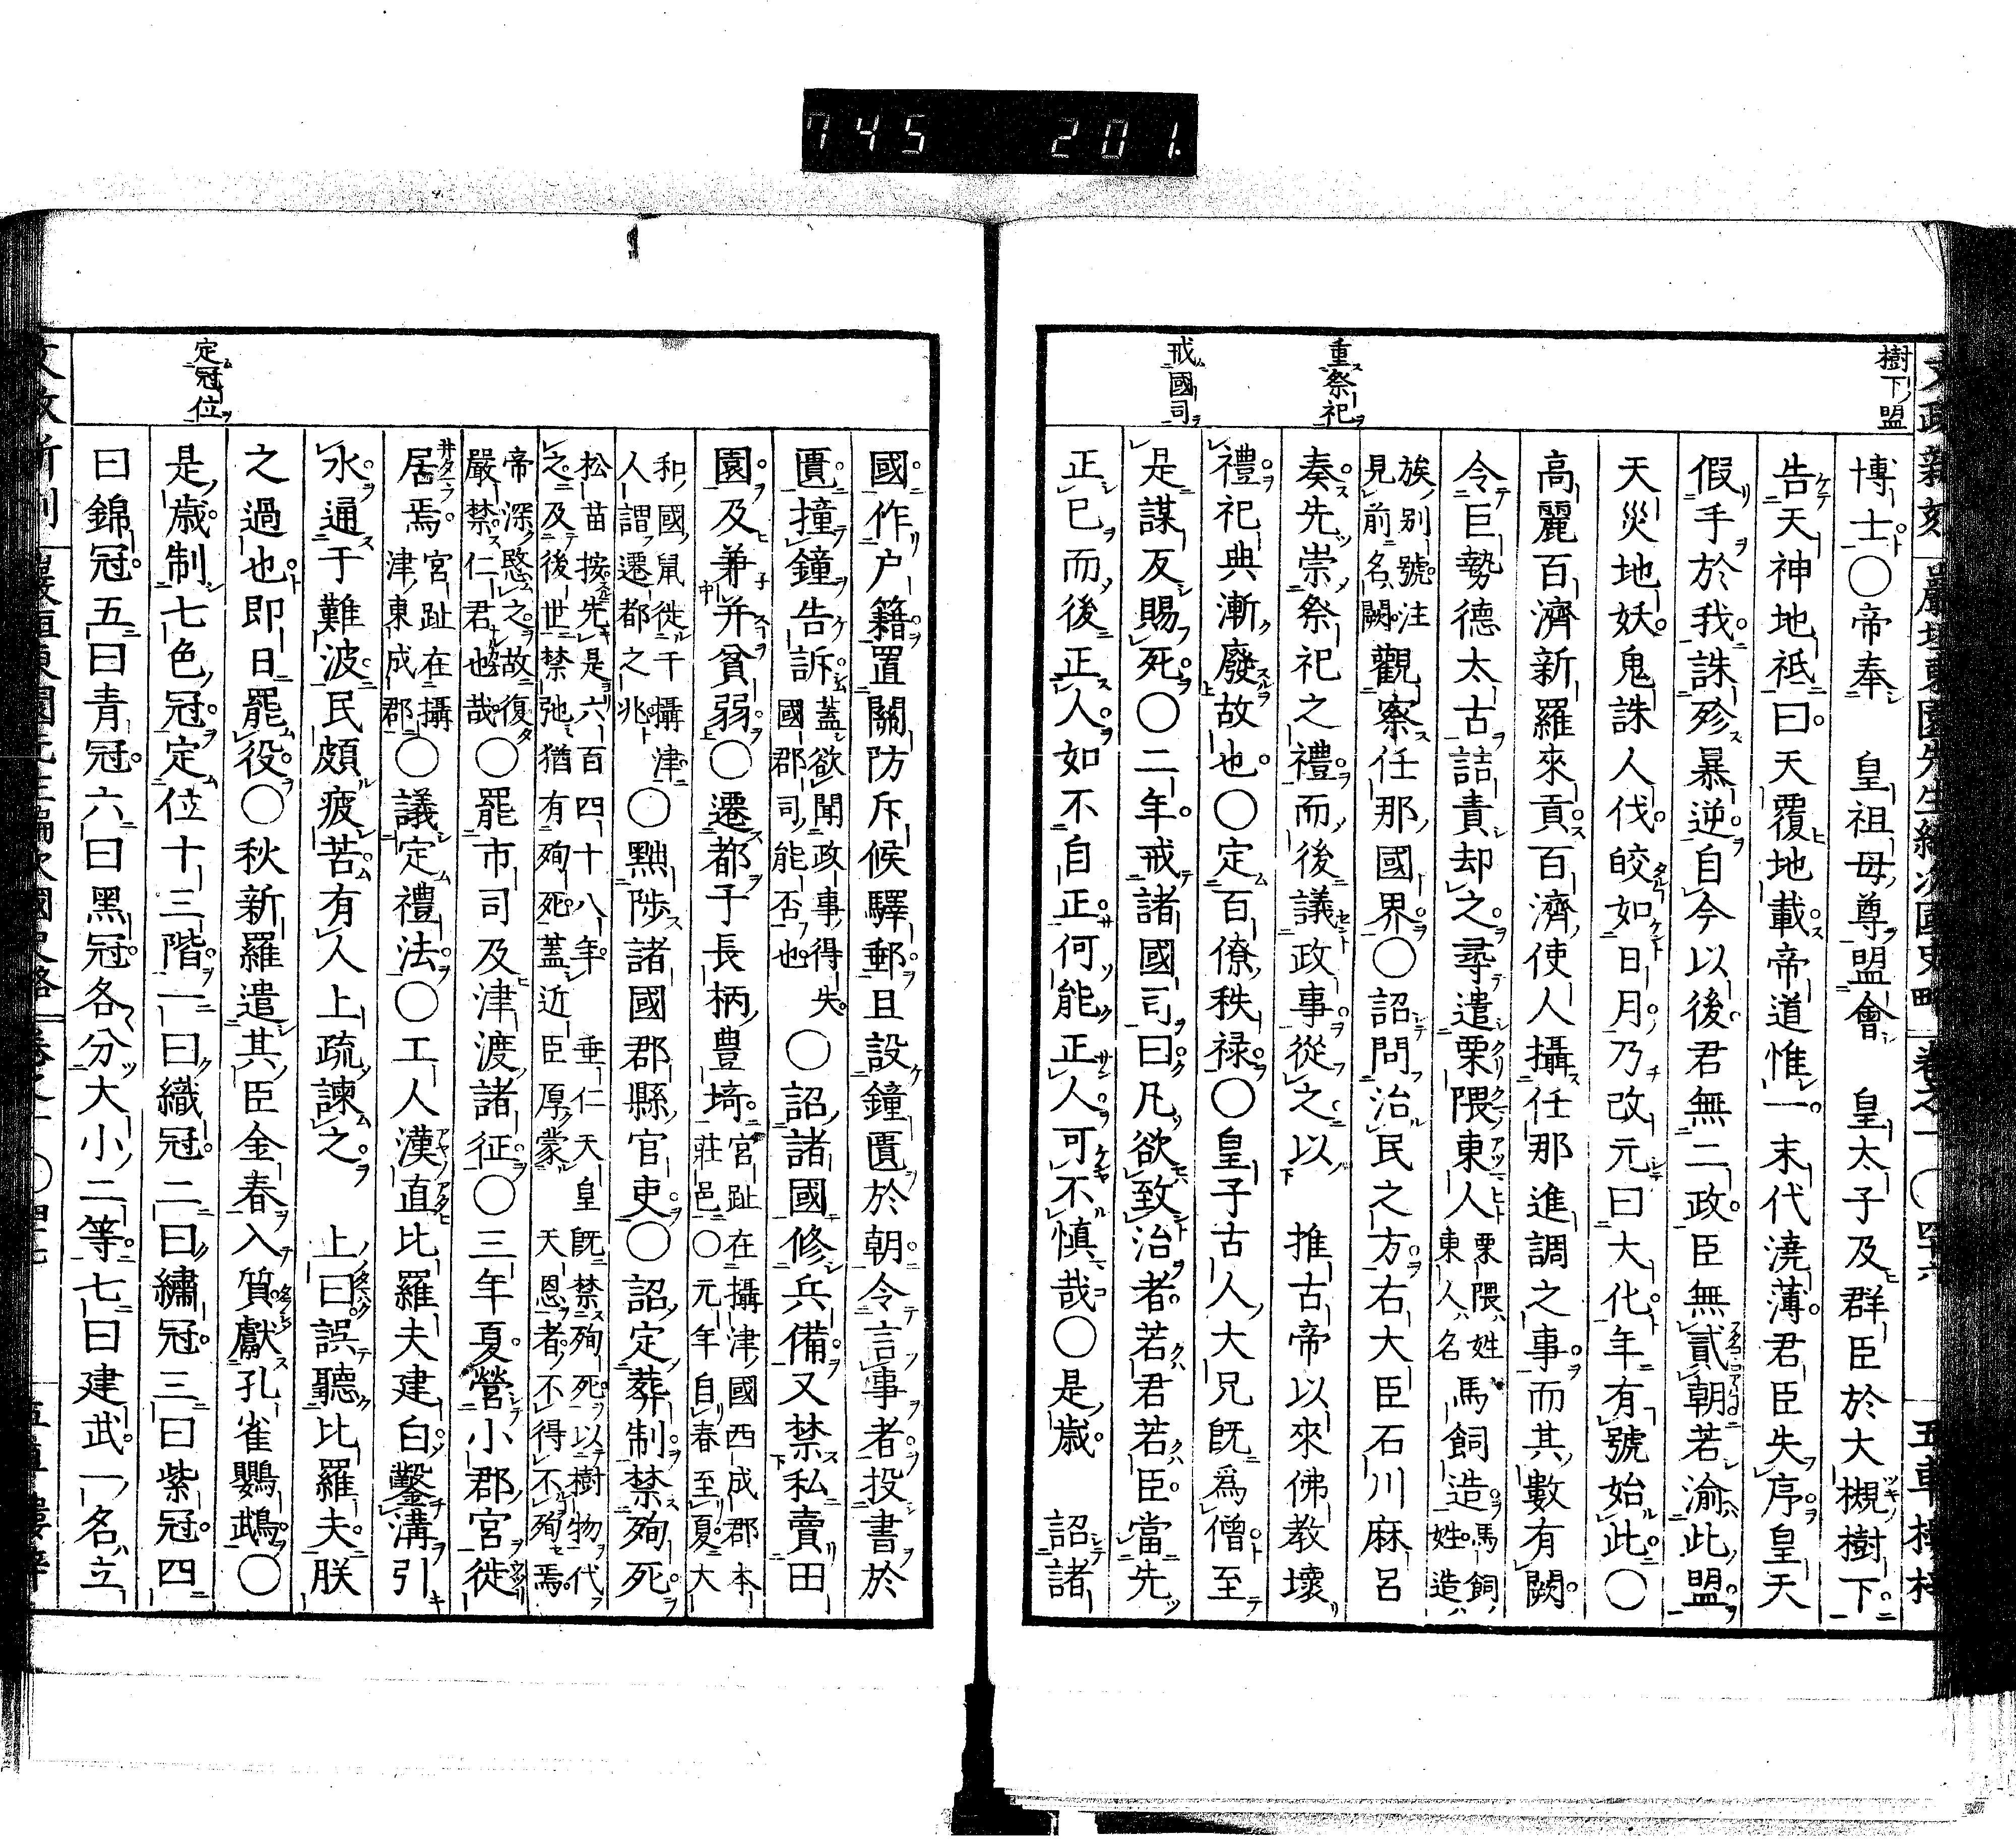 745 201.
樹下盟
重祭祀
戒國司
博士○帝奉　皇祖母尊盟會　皇太子及群臣於大槻樹下
告天神地祗曰天覆地載帝道惟一末代澆薄君臣失序皇天
假手於我誅殄暴逆自今以後君無二政臣無貳朝若渝此盟
天災地妖鬼誅人伐皎如日月乃改元曰大化年有號始此○
高麗百濟新羅來貢百濟使人攝任那進調之事而其數有闕
令巨勢德太古詰責却之尋遣栗隈東人栗隈姓東人名馬飼造馬飼姓造
族別號注見前名闕觀察任那國界○詔問治民之方右大臣石川麻呂
奏先崇祭祀之禮而後議政事從之以　推古帝以來佛教壞
禮祀典漸廢故也○定百僚秩禄○皇子古人大兄既爲僧至
是謀反賜死○二年戒諸國司曰凡欲致治者若君若臣當先
正已而後正人如不自正何能正人可不慎哉○是歳　詔諸
國作户籍置關防斥候驛郵且設鐘匱於朝令言事者投書於
匱撞鐘告訴蓋欲聞政事得失國郡司能否也○詔諸國修兵備又禁私賣田
園及兼并貧弱○遷都于長柄豊埼宮趾在攝津國西成郡本莊邑○元年自春至夏大
和國鼠徙于攝津人謂遷都之兆○黜陟諸國郡縣官吏○詔定葬制禁殉死
松苗按先是六百四十八年　垂仁天皇既禁殉死以樹物代之及後世禁弛猶有殉死蓋近臣厚蒙　天恩者不得不殉焉
帝深愍之故復嚴禁仁君也哉○罷市司及津渡諸征○三年夏營小郡宮徙
居焉宮趾在攝津東成郡○議定禮法○工人漢直比羅夫建白鑿溝引
水通于難波民頗疲苦有人上疏諫之　上曰誤聽比羅夫朕
之過也即日罷役○秋新羅遣其臣金春入質獻孔雀鸚鵡○
是歳制七色冠定位十三階一曰織冠二曰繡冠三曰紫冠四
曰錦冠五曰青冠六曰黑冠各分大小二等七曰建武一名立
定冠位